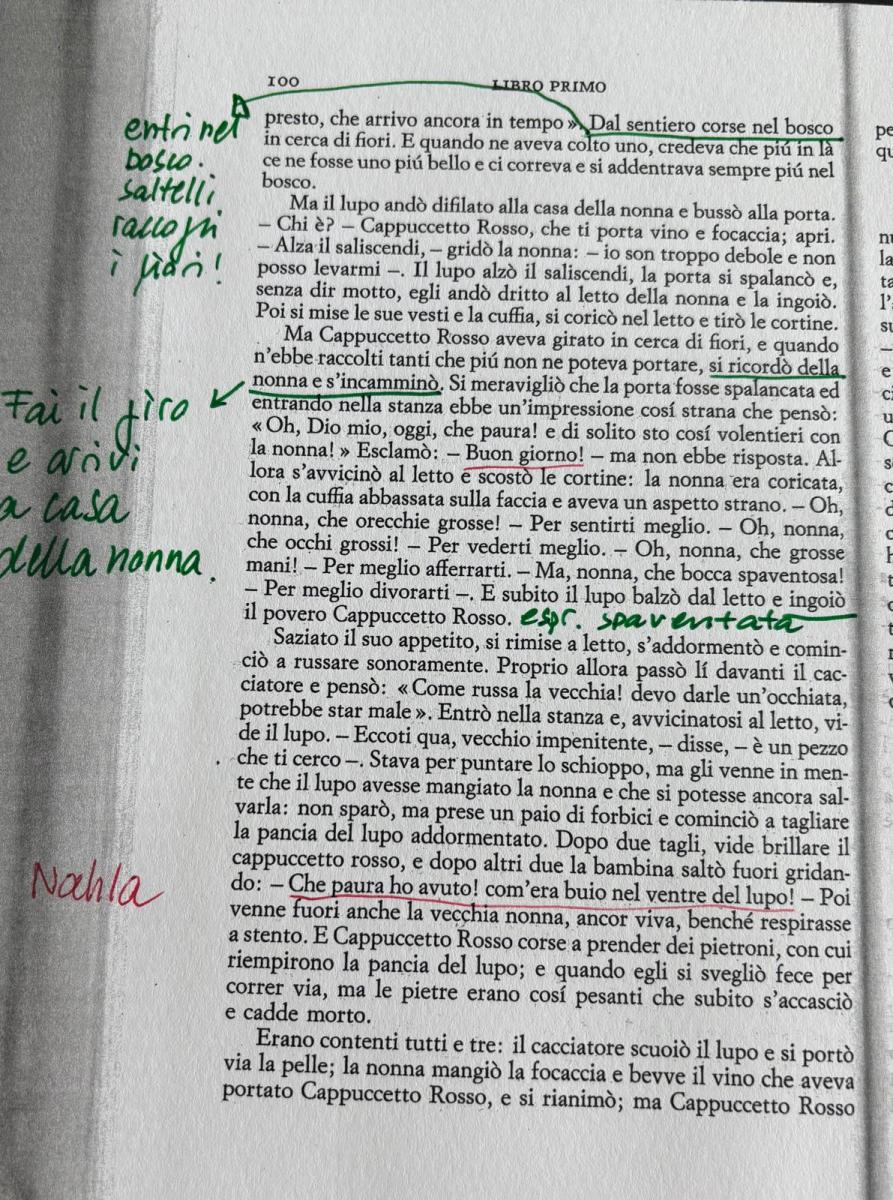 100
LIBRO PRIMO
presto, che arrivo ancora in tempo ». Dal sentiero corse nel bosco
in cerca di fiori. E quando ne aveva colto uno, credeva che piú in là
ce ne fosse uno piú bello e ci correva e si addentrava sempre piú nel
bosco.
Ma il lupo andò difilato alla casa della nonna e bussò alla porta.
– Chi è? – Cappuccetto Rosso, che ti porta vino e focaccia; apri.
– Alza il saliscendi, – gridò la nonna: – io son troppo debole e non
posso levarmi –. Il lupo alzò il saliscendi, la porta si spalancò e,
senza dir motto, egli andò dritto al letto della nonna e la ingoiò.
Poi si mise le sue vesti e la cuffia, si coricò nel letto e tirò le cortine.
Ma Cappuccetto Rosso aveva girato in cerca di fiori, e quando
n'ebbe raccolti tanti che piú non ne poteva portare, si ricordò della
nonna e s'incamminò. Si meravigliò che la porta fosse spalancata ed
entrando nella stanza ebbe un'impressione cosí strana che pensò:
« Oh, Dio mio, oggi, che paura! e di solito sto cosí volentieri con
la nonna! » Esclamò: – Buon giorno! – ma non ebbe risposta. Al-
lora s'avvicinò al letto e scostò le cortine: la nonna era coricata,
con la cuffia abbassata sulla faccia e aveva un aspetto strano. – Oh,
nonna, che orecchie grosse! – Per sentirti meglio. – Oh, nonna,
che occhi grossi! – Per vederti meglio. – Oh, nonna, che grosse
mani! – Per meglio afferrarti. – Ma, nonna, che bocca spaventosa!
– Per meglio divorarti –. E subito il lupo balzò dal letto e ingoiò
il povero Cappuccetto Rosso. espr. spaventata
Saziato il suo appetito, si rimise a letto, s'addormentò e comin-
ciò a russare sonoramente. Proprio allora passò lí davanti il cac-
ciatore e pensò: « Come russa la vecchia! devo darle un'occhiata,
potrebbe star male ». Entrò nella stanza e, avvicinatosi al letto, vi-
de il lupo. – Eccoti qua, vecchio impenitente, – disse, – è un pezzo
che ti cerco –. Stava per puntare lo schioppo, ma gli venne in men-
te che il lupo avesse mangiato la nonna e che si potesse ancora sal-
varla: non sparò, ma prese un paio di forbici e cominciò a tagliare
la pancia del lupo addormentato. Dopo due tagli, vide brillare il
cappuccetto rosso, e dopo altri due la bambina saltò fuori gridan-
do: – Che paura ho avuto! com'era buio nel ventre del lupo! – Poi
venne fuori anche la vecchia nonna, ancor viva, benché respirasse
a stento. E Cappuccetto Rosso corse a prender dei pietroni, con cui
riempirono la pancia del lupo; e quando egli si svegliò fece per
correr via, ma le pietre erano cosí pesanti che subito s'accasciò
e cadde morto.
Erano contenti tutti e tre: il cacciatore scuoiò il lupo e si portò
via la pelle; la nonna mangiò la focaccia e bevve il vino che aveva
portato Cappuccetto Rosso, e si rianimò; ma Cappuccetto Rosso
entri nel
bosco.
saltelli
raccogli
i fiori!
Fai il giro
e arrivi
a casa
della nonna.
Nahla